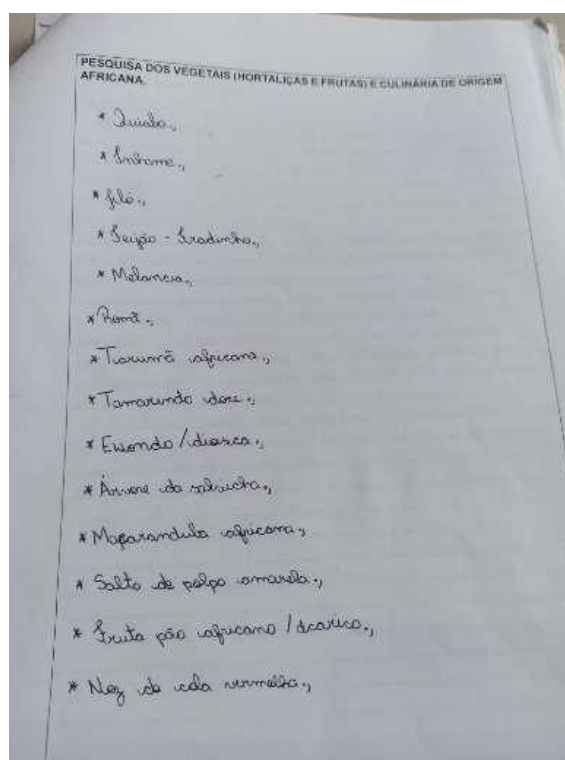 PESQUISA DOS VEGETAIS (HORTALIÇAS E FRUTAS) E CULINÁRIA DE ORIGEM
AFRICANA.
* Quiabo.,
* Inhame.,
* Jiló.,
* Feijão - Fradinho.,
* Melancia.,
* Romã.,
* Tarumã africana.,
* Tamarindo doce.,
* Árvore da salsicha.,
* africana.,
* de polpa amarela.,
* Fruta pão africano /
* Noz de cola vermelha.,